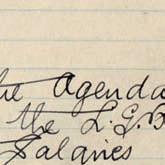 the Agenda
the L.G.
Salaries